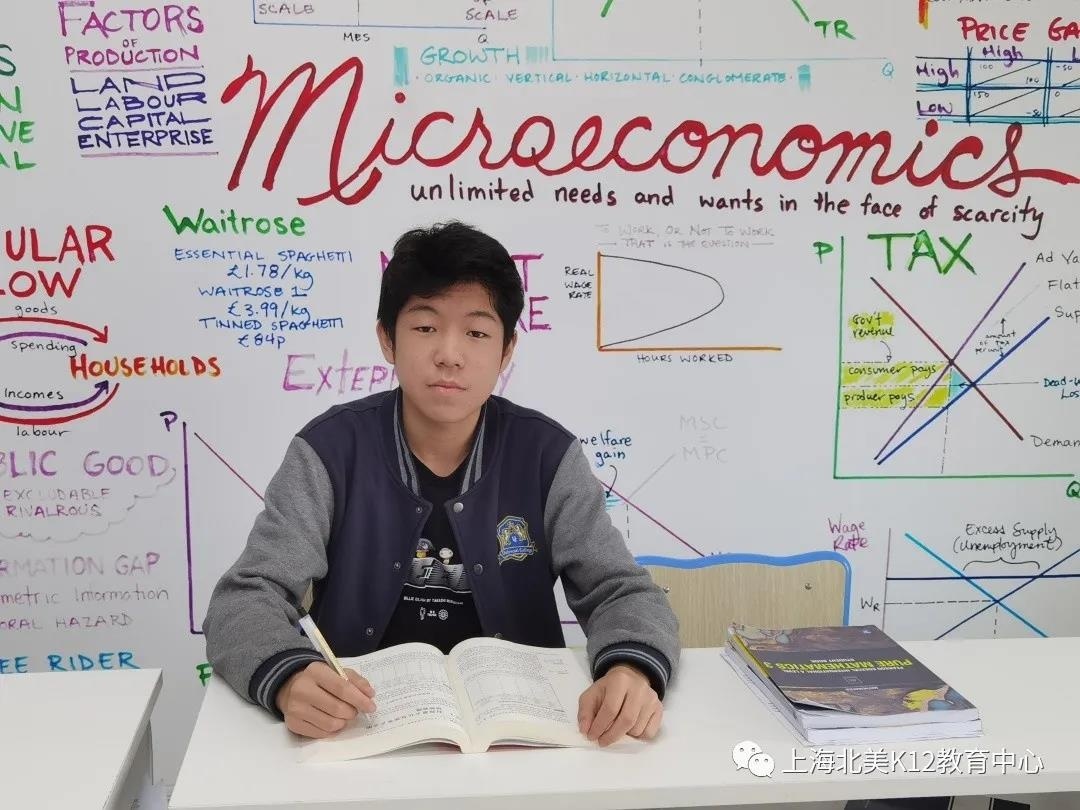 FACTORS
OF
PRODUCTION
LAND
LABOUR
CAPITAL
ENTERPRISE
SCALE
MES
Q
OF
SCALE
GROWTH
ORGANIC · VERTICAL · HORIZONTAL · CONGLOMERATE
TR
Q
PRICE GA
High
High
Low
100
100
-50
150
-50
0
Microeconomics
unlimited needs and wants in the face of scarcity
ULAR
LOW
goods
Spending
HOUSEHOLDS
Incomes
labour
Waitrose
ESSENTIAL SPAGHETTI
£1.78/kg
WAITROSE 1
£3.99/kg
TINNED SPAGHETTI
£84p
TO WORK, OR NOT TO WORK
THAT IS THE QUESTION
REAL
WAGE
RATE
HOURS WORKED
P
TAX
Ad Va
Flat
Sup
Gov't
revenue
amount
of tax
per unit
consumer pays
producer pays
Dead-w
Los
Deman
Q
P
welfare
gain
MSC
=
MPC
BLIC GOOD
EXCLUDABLE
RIVALROUS
RMATION GAP
mmetric Information
ORAL HAZARD
EE RIDER
Wage
Rate
Excess Supply
(Unemployment)
WR
PURE MATHEMATICS 3
STUDENT BOOK
上海北美K12教育中心